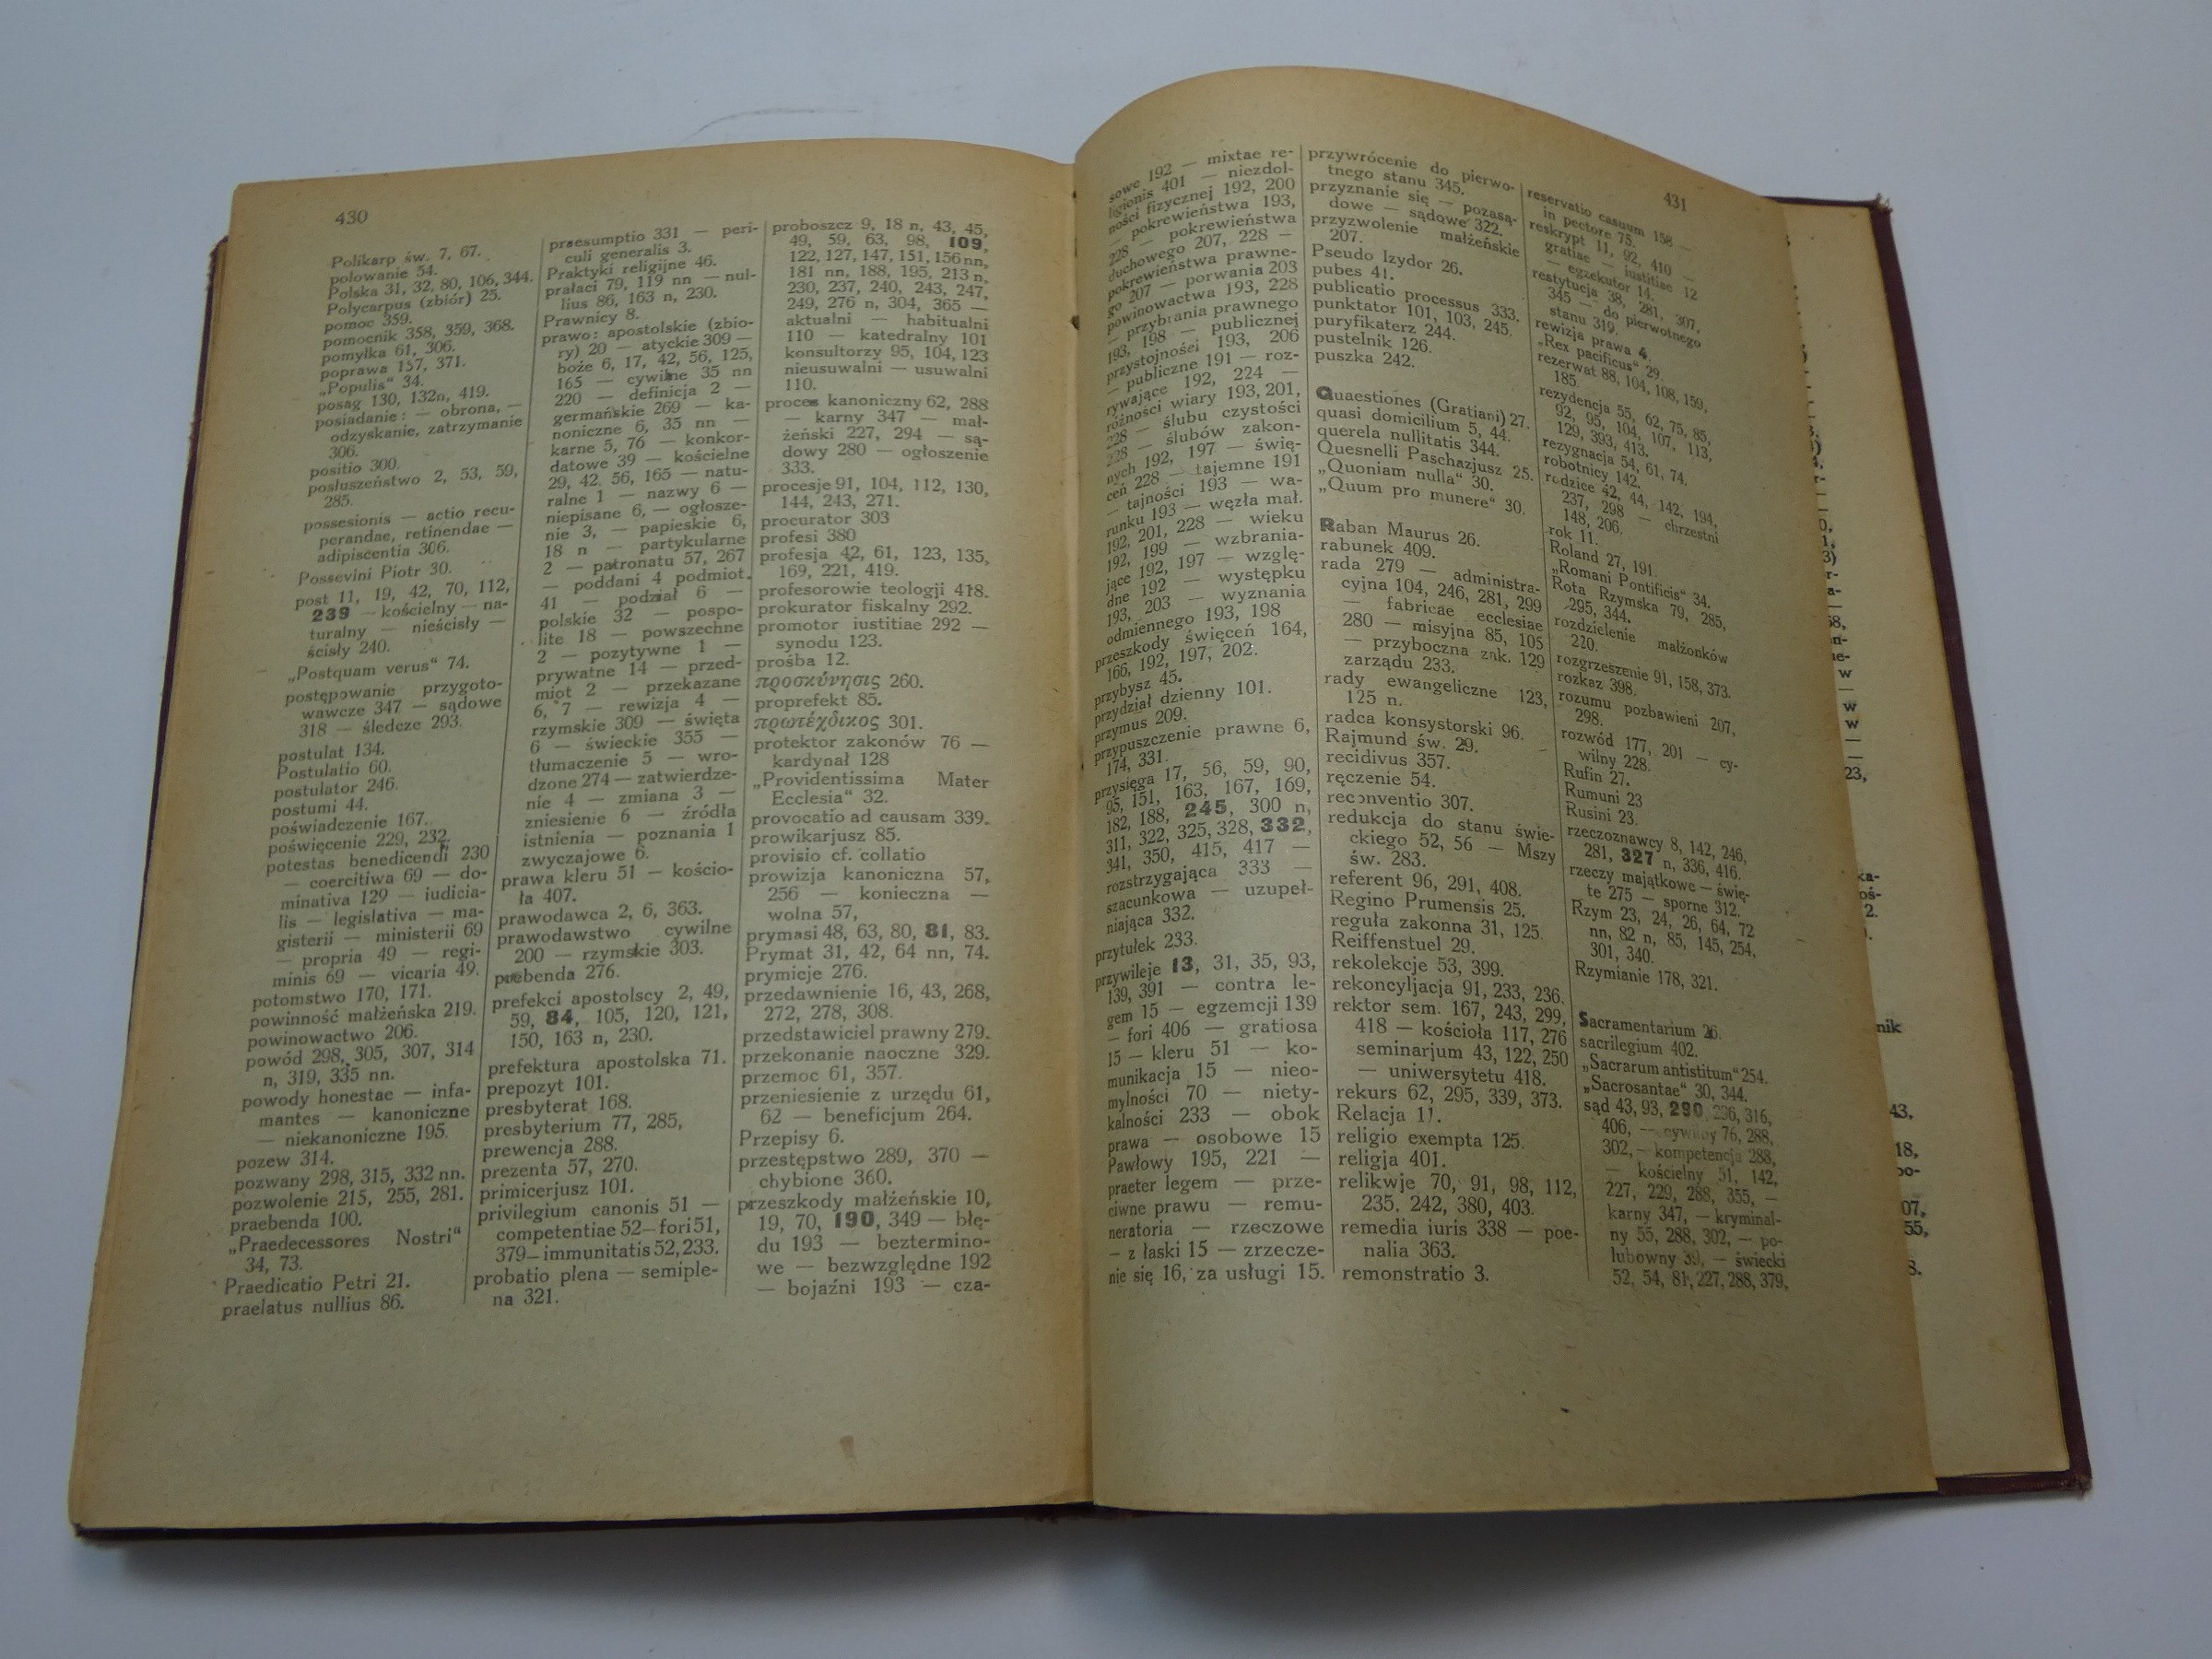 430
Polikarp św. 7, 67.
polowanie 54.
Polska 31, 32, 80, 106, 344.
Polycarpus (zbiór) 25.
pomoc 359.
pomocnik 358, 359, 368.
pomyłka 61, 306.
poprawa 157, 371.
„Populis“ 34.
posag 130, 132n, 419.
posiadanie: — obrona, —
odzyskanie, zatrzymanie
306.
positio 300.
posłuszeństwo 2, 53, 59,
285.
possesionis — actio recu-
perandae, retinendae —
adipiscentia 306.
Possevini Piotr 30.
post 11, 19, 42, 70, 112,
239 — kościelny — na-
turalny — nieścisły —
ścisły 240.
„Postquam verus“ 74.
postępowanie przygoto-
wawcze 347 — sądowe
318 — śledcze 293.
postulat 134.
Postulatio 60.
postulator 246.
postumi 44.
poświadczenie 167.
poświęcenie 229, 232.
potestas benedicendi 230
— coercitiwa 69 — do-
minativa 129 — iudicia-
lis — legislativa — ma-
gisterii — ministerii 69
— propria 49 — regi-
minis 69 — vicaria 49.
potomstwo 170, 171.
powinność małżeńska 219.
powinowactwo 206.
powód 298, 305, 307, 314
n, 319, 335 nn.
powody honestae — infa-
mantes — kanoniczne
— niekanoniczne 195.
pozew 314.
pozwany 298, 315, 332 nn.
pozwolenie 215, 255, 281.
praebenda 100.
„Praedecessores Nostri“
34, 73.
Praedicatio Petri 21.
praelatus nullius 86.
praesumptio 331 — peri-
culi generalis 3.
Praktyki religijne 46.
prałaci 79, 119 nn — nul-
lius 86, 163 n, 230.
Prawnicy 8.
prawo: apostolskie (zbio-
ry) 20 — atyckie 309 —
boże 6, 17, 42, 56, 125,
165 — cywilne 35 nn
220 — definicja 2 —
germańskie 269 — ka-
noniczne 6, 35 nn —
karne 5, 76 — konkor-
datowe 39 — kościelne
29, 42, 56, 165 — natu-
ralne 1 — nazwy 6 —
niepisane 6, — ogłosze-
nie 3, — papieskie 6,
18 n — partykularne
2 — patronatu 57, 267
— poddani 4 podmiot
41 — podział 6 —
polskie 32 — pospo-
lite 18 — powszechne
2 — pozytywne 1 —
prywatne 14 — przed-
miot 2 — przekazane
6, 7 — rewizja 4 —
rzymskie 309 — święta
6 — świeckie 355 —
tłumaczenie 5 — wro-
dzone 274 — zatwierdze-
nie 4 — zmiana 3 —
zniesienie 6 — źródła
istnienia — poznania 1
zwyczajowe 6.
prawa kleru 51 — kościo-
ła 407.
prawodawca 2, 6, 363.
prawodawstwo cywilne
200 — rzymskie 303.
prebenda 276.
prefekci apostolscy 2, 49,
59, 84, 105, 120, 121,
150, 163 n, 230.
prefektura apostolska 71.
prepozyt 101.
presbyterat 168.
presbyterium 77, 285,
prewencja 288.
prezenta 57, 270.
primicerjusz 101.
privilegium canonis 51 —
competentiae 52—fori 51,
379—immunitatis 52, 233.
probatio plena — semiple-
na 321.
proboszcz 9, 18 n, 43, 45,
49, 59, 63, 98, 109,
122, 127, 147, 151, 156 nn,
181 nn, 188, 195, 213 n,
230, 237, 240, 243, 247,
249, 276 n, 304, 365 —
aktualni — habitualni
110 — katedralny 101
konsultorzy 95, 104, 123
nieusuwalni — usuwalni
110.
proces kanoniczny 62, 288
— karny 347 — mał-
żeński 227, 294 — są-
dowy 280 — ogłoszenie
333.
procesje 91, 104, 112, 130,
144, 243, 271.
procurator 303
profesi 380
profesja 42, 61, 123, 135,
169, 221, 419.
profesorowie teologji 418.
prokurator fiskalny 292.
promotor iustitiae 292 —
synodu 123.
prośba 12.
προσκύνησις 260.
proprefekt 85.
πρωτέχδικος 301.
protektor zakonów 76 —
kardynał 128
„Providentissima Mater
Ecclesia“ 32.
provocatio ad causam 339.
prowikarjusz 85.
provisio cf. collatio
prowizja kanoniczna 57,
256 — konieczna —
wolna 57,
prymasi 48, 63, 80, 81, 83.
Prymat 31, 42, 64 nn, 74.
prymicje 276.
przedawnienie 16, 43, 268,
272, 278, 308.
przedstawiciel prawny 279.
przekonanie naoczne 329.
przemoc 61, 357.
przeniesienie z urzędu 61,
62 — beneficjum 264.
Przepisy 6.
przestępstwo 289, 370 —
chybione 360.
przeszkody małżeńskie 10,
19, 70, 190, 349 — błę-
du 193 — beztermino-
we — bezwzględne 192
— bojaźni 193 — cza-
431
sowe 192 — mixtae re-
ligionis 401 — niezdol-
ności fizycznej 192, 200
— pokrewieństwa 193,
228 — pokrewieństwa
duchowego 207, 228 —
pokrewieństwa prawne-
go 207 — porwania 203
powinowactwa 193, 228
— przybrania prawnego
193, 198 — publicznej
przystojności 193, 206
— publiczne 191 — roz-
rywające 192, 224 —
różności wiary 193, 201,
228 — ślubu czystości
228 — ślubów zakon-
nych 192, 197 — świę-
ceń 228 — tajemne 191
— tajności 193 — wa-
runku 193 — węzła mał.
192, 201, 228 — wieku
192, 199 — wzbrania-
jące 192, 197 — wzglę-
dne 192 — występku
193, 203 — wyznania
odmiennego 193, 198
przeszkody święceń 164,
166, 192, 197, 202.
przybysz 45.
przydział dzienny 101.
przymus 209.
przypuszczenie prawne 6,
174, 331.
przysięga 17, 56, 59, 90,
95, 151, 163, 167, 169,
182, 188, 245, 300 n,
311, 322, 325, 328, 332,
341, 350, 415, 417 —
rozstrzygająca 333 —
szacunkowa — uzupeł-
niająca 332.
przytułek 233.
przywileje 13, 31, 35, 93,
139, 391 — contra le-
gem 15 — egzemcji 139
— fori 406 — gratiosa
15 — kleru 51 — ko-
munikacja 15 — nieo-
mylności 70 — niety-
kalności 233 — obok
prawa — osobowe 15
Pawłowy 195, 221 —
praeter legem — prze-
ciwne prawu — remu-
neratoria — rzeczowe
— z łaski 15 — zrzecze-
nie się 16, za usługi 15.
przywrócenie do pierwo-
tnego stanu 345.
przyznanie się — pozasą-
dowe — sądowe 322.
przyzwolenie małżeńskie
207.
Pseudo Izydor 26.
pubes 41.
publicatio processus 333.
punktator 101, 103, 245.
puryfikaterz 244.
pustelnik 126.
puszka 242.
Quaestiones (Gratiani) 27.
quasi domicilium 5, 44.
querela nullitatis 344.
Quesnelli Paschazjusz 25.
„Quoniam nulla“ 30.
„Quum pro munere“ 30.
Raban Maurus 26.
rabunek 409.
rada 279 — administra-
cyjna 104, 246, 281, 299
— fabricae ecclesiae
280 — misyjna 85, 105
— przyboczna zak. 129
zarządu 233.
rady ewangeliczne 123,
125 n.
radca konsystorski 96.
Rajmund św. 29.
recidivus 357.
ręczenie 54.
reconventio 307.
redukcja do stanu świe-
ckiego 52, 56 — Mszy
św. 283.
referent 96, 291, 408.
Regino Prumensis 25.
reguła zakonna 31, 125.
Reiffenstuel 29.
rekolekcje 53, 399.
rekoncyljacja 91, 233, 236.
rektor sem. 167, 243, 299,
418 — kościoła 117, 276
seminarjum 43, 122, 250
— uniwersytetu 418.
rekurs 62, 295, 339, 373.
Relacja 11.
religio exempta 125.
religja 401.
relikwje 70, 91, 98, 112,
235, 242, 380, 403.
remedia iuris 338 — poe-
nalia 363.
remonstratio 3.
reservatio casuum 158 —
in pectore 75.
reskrypt 11, 92, 410 —
gratiae — iustitiae 12
— egzekutor 14.
restytucja 38, 281, 307,
345 — do pierwotnego
stanu 319.
rewizja prawa 4.
„Rex pacificus“ 29.
rezerwat 88, 104, 108, 159,
185.
rezydencja 55, 62, 75, 85,
92, 95, 104, 107, 113,
129, 393, 413.
rezygnacja 54, 61, 74.
robotnicy 142.
rodzice 42, 44, 142, 194,
237, 298 — chrzestni
148, 206.
rok 11.
Roland 27, 191.
„Romani Pontificis“ 34.
Rota Rzymska 79, 285,
295, 344.
rozdzielenie małżonków
220.
rozgrzeszenie 91, 158, 373.
rozkaz 398.
rozumu pozbawieni 207,
298.
rozwód 177, 201 — cy-
wilny 228.
Rufin 27.
Rumuni 23
Rusini 23.
rzeczoznawcy 8, 142, 246,
281, 327 n, 336, 416.
rzeczy majątkowe — świę-
te 275 — sporne 312.
Rzym 23, 24, 26, 64, 72
nn, 82 n, 85, 145, 254,
301, 340.
Rzymianie 178, 321.
Sacramentarium 26.
sacrilegium 402.
„Sacrarum antistitum“ 254.
„Sacrosantae“ 30, 344.
sąd 43, 93, 290, 296, 316,
406, — cywilny 76, 288,
302, — kompetencja 288,
— kościelny 51, 142,
227, 229, 288, 355, —
karny 347, — kryminal-
ny 55, 288, 302, — po-
lubowny 39, — świecki
52, 54, 81, 227, 288, 379,